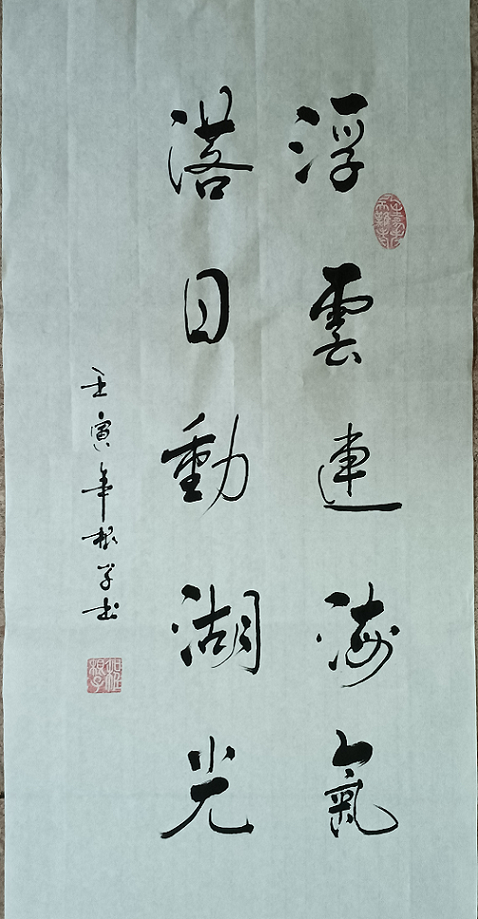 浮雲連海氣
落日動湖光
壬寅年根子书